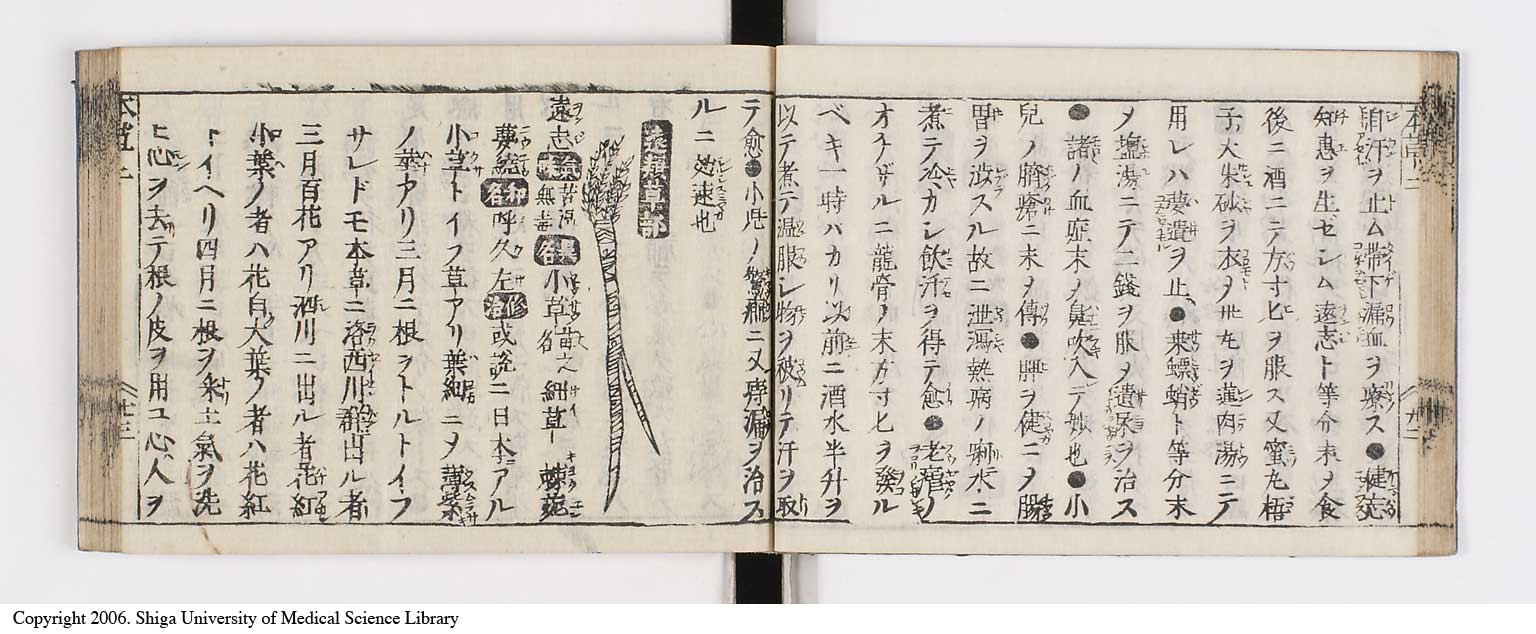 自汗ヲ止ム帯下漏血ヲ療ス●健忘
知惠ヲ生ゼシム遠志ト等分末メ食
後ニ酒ニテ方寸匕ヲ服ス又蜜丸梧
子大朱砂ヲ衣メ 丸ヲ蓮肉湯ニテ
用レハ夢遺ヲ止●桒螵蛸ト等分末
メ塩湯ニテ二錢ヲ服メ遺尿ヲ治ス
●諸ノ血症末メ鼻吹入テ妙也●小
兒ノ臍瘡ニ末ヲ傅●脾ヲ健ニメ腸
胃ヲ渋スル故ニ泄瀉熱病ノ 水ニ
煮テ冷カシ飲汗ヲ得テ愈●老瘧ノ
オチザルニ龍骨ノ末方寸匕ヲ發ル
ベキ一時バカリ以前ニ酒水半升ヲ
以テ煮テ温服シ物ヲ被リテ汗ヲ取
テ愈●小児ノ驚癇ニ又痔漏ヲ治ス
ルニ 速也
草部
遠志 氣味 苦温無毒 異名 小草苗之名 細草 棘菀
和名 呼久左 修治 或説ニ日本ニアル
小草トイフ草アリ葉細ニメ薄紫
ノ華アリ三月ニ根ヲトルトイフ
サレドモ本草ニ洛西川 出ル者
三月百花アリ泗川ニ出ル者花紅
小葉ノ者ハ花白大葉ノ者ハ花紅
トイヘリ四月ニ根ヲ采土氣ヲ洗
ヒ心ヲ去テ根ノ皮ヲ用ユ心人ヲ
Copyright 2006. Shiga University of Medical Science Library